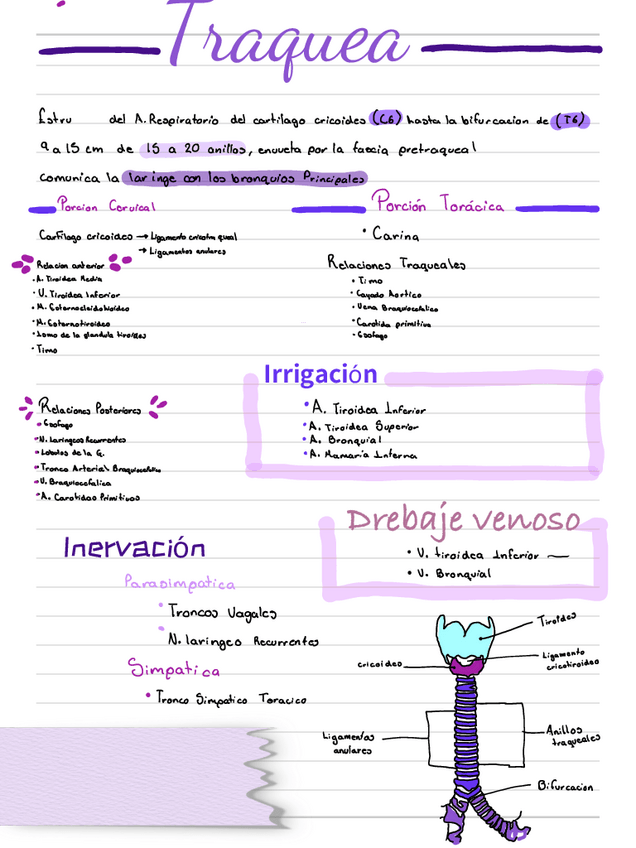 Traquea
Estru del A. Respiratorio del cartilago cricoides (C6) hasta la bifurcacion de (T6)
9 a 15 cm de 15 a 20 anillos, envueta por la fascia pretraqueal
comunica la laringe con los bronquios Principales
Porcion Cervical
Cartílago cricoideo → Ligamento
→ Ligamentos anulares
Relacion anterior
• A. Tiroidea Media
• V. Tiroidea Inferior
• M. Esternocleidohioideo
• M. Esternotiroideo
• de la glandula tiroides
• Timo
Porción Torácica
• Carina
Relaciones Traqueales
• Timo
• Cayado Aortico
• Vena Braquiocefalica
• Carotida primitiva
• Esofago
Irrigación
• A. Tiroidea Inferior
• A. Tiroidea Superior
• A. Bronquial
• A. Mamaria Interna
Relaciones Posteriores
• Esofago
• N. Laringeos Recurrentes
• Lobulos de la G.
• Tronco Arterial Braquiocefalico
• V. Braquiocefalica
• A. Carotidas Primitivas
Drebaje venoso
• V. tiroidea Inferior
• V. Bronquial
Inervación
Parasimpatica
• Troncos Vagales
• N. laringeo Recurrentes
Simpatica
• Tronco Simpatico Toracico
Tiroides
Ligamento
cricotiroideo
cricoideo
Ligamentos
anulares
Anillos
traqueales
Bifurcacion